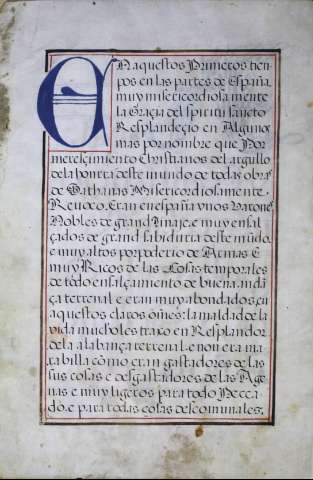 En aquestos Primeros tien
pos en las partes de España
muy misericordiosamente
la Graçia del spiritu sancto
Resplandeçio en Alguno
mas por nombre que Por
mereçimiento christianos del argullo
de la honrra deste mundo de todas obras
de Sathanas Misericordiosamente.
Reuoco. Eran en españa vnos Varone
Nobles de grand linaje. e muy ensal
çados de grand sabiduria deste mũdo.
e muy altos por poderio de Armas E
muy Ricos de las Cosas temporales
de todo ensalçamiento de buena andã
ça terrenal e eran muy abondados. en
aquestos claros om̃es: la maldad de la
vida mucho les traxo en Resplandor
de la alabança terrenal. e non era ma
rabilla cõmo eran gastadores de las
sus cosas e desgastadores de las Age
nas e muy ligeros para todo Pecca
do. e para todas cosas descomunales;